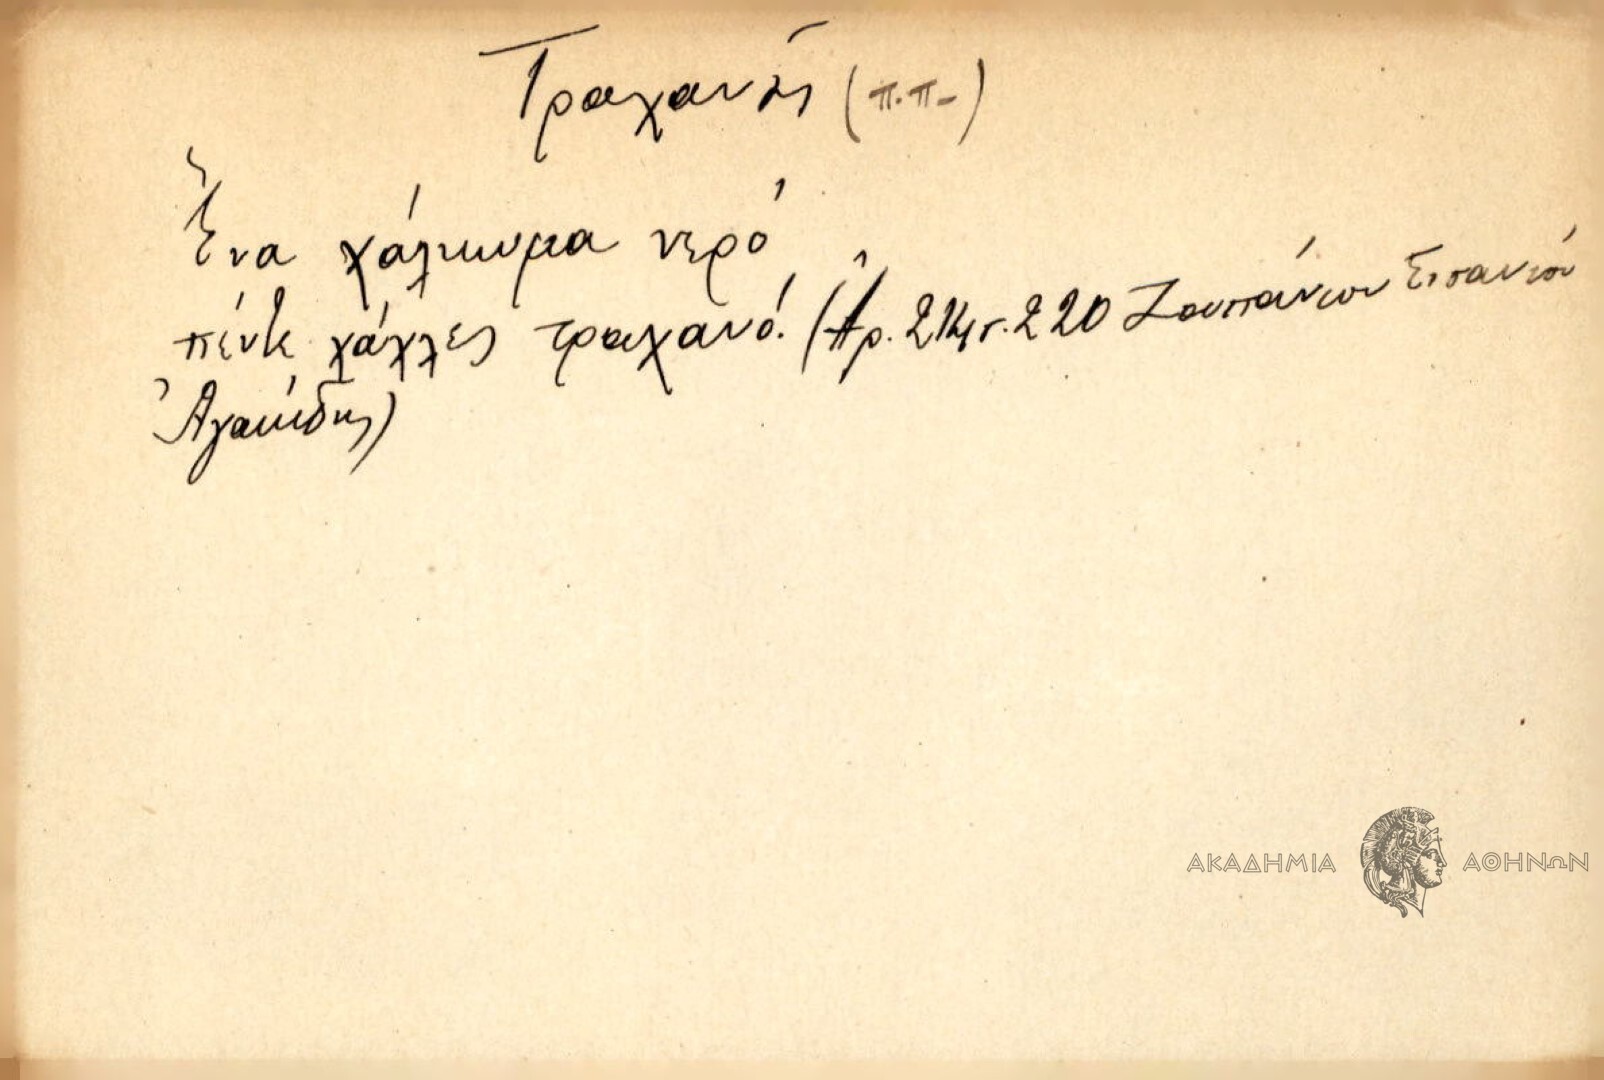 Τραχανάς (π.π.)
Ἕνα χάλκωμα νερό
πέντε χάχλες τραχανό! (Ἀρ. 214 σ. 220 Ζουπάνιον Σισανίου
Ἀγακίδης)
ΑΚΑΔΗΜΙΑ ΑΘΗΝΩΝ